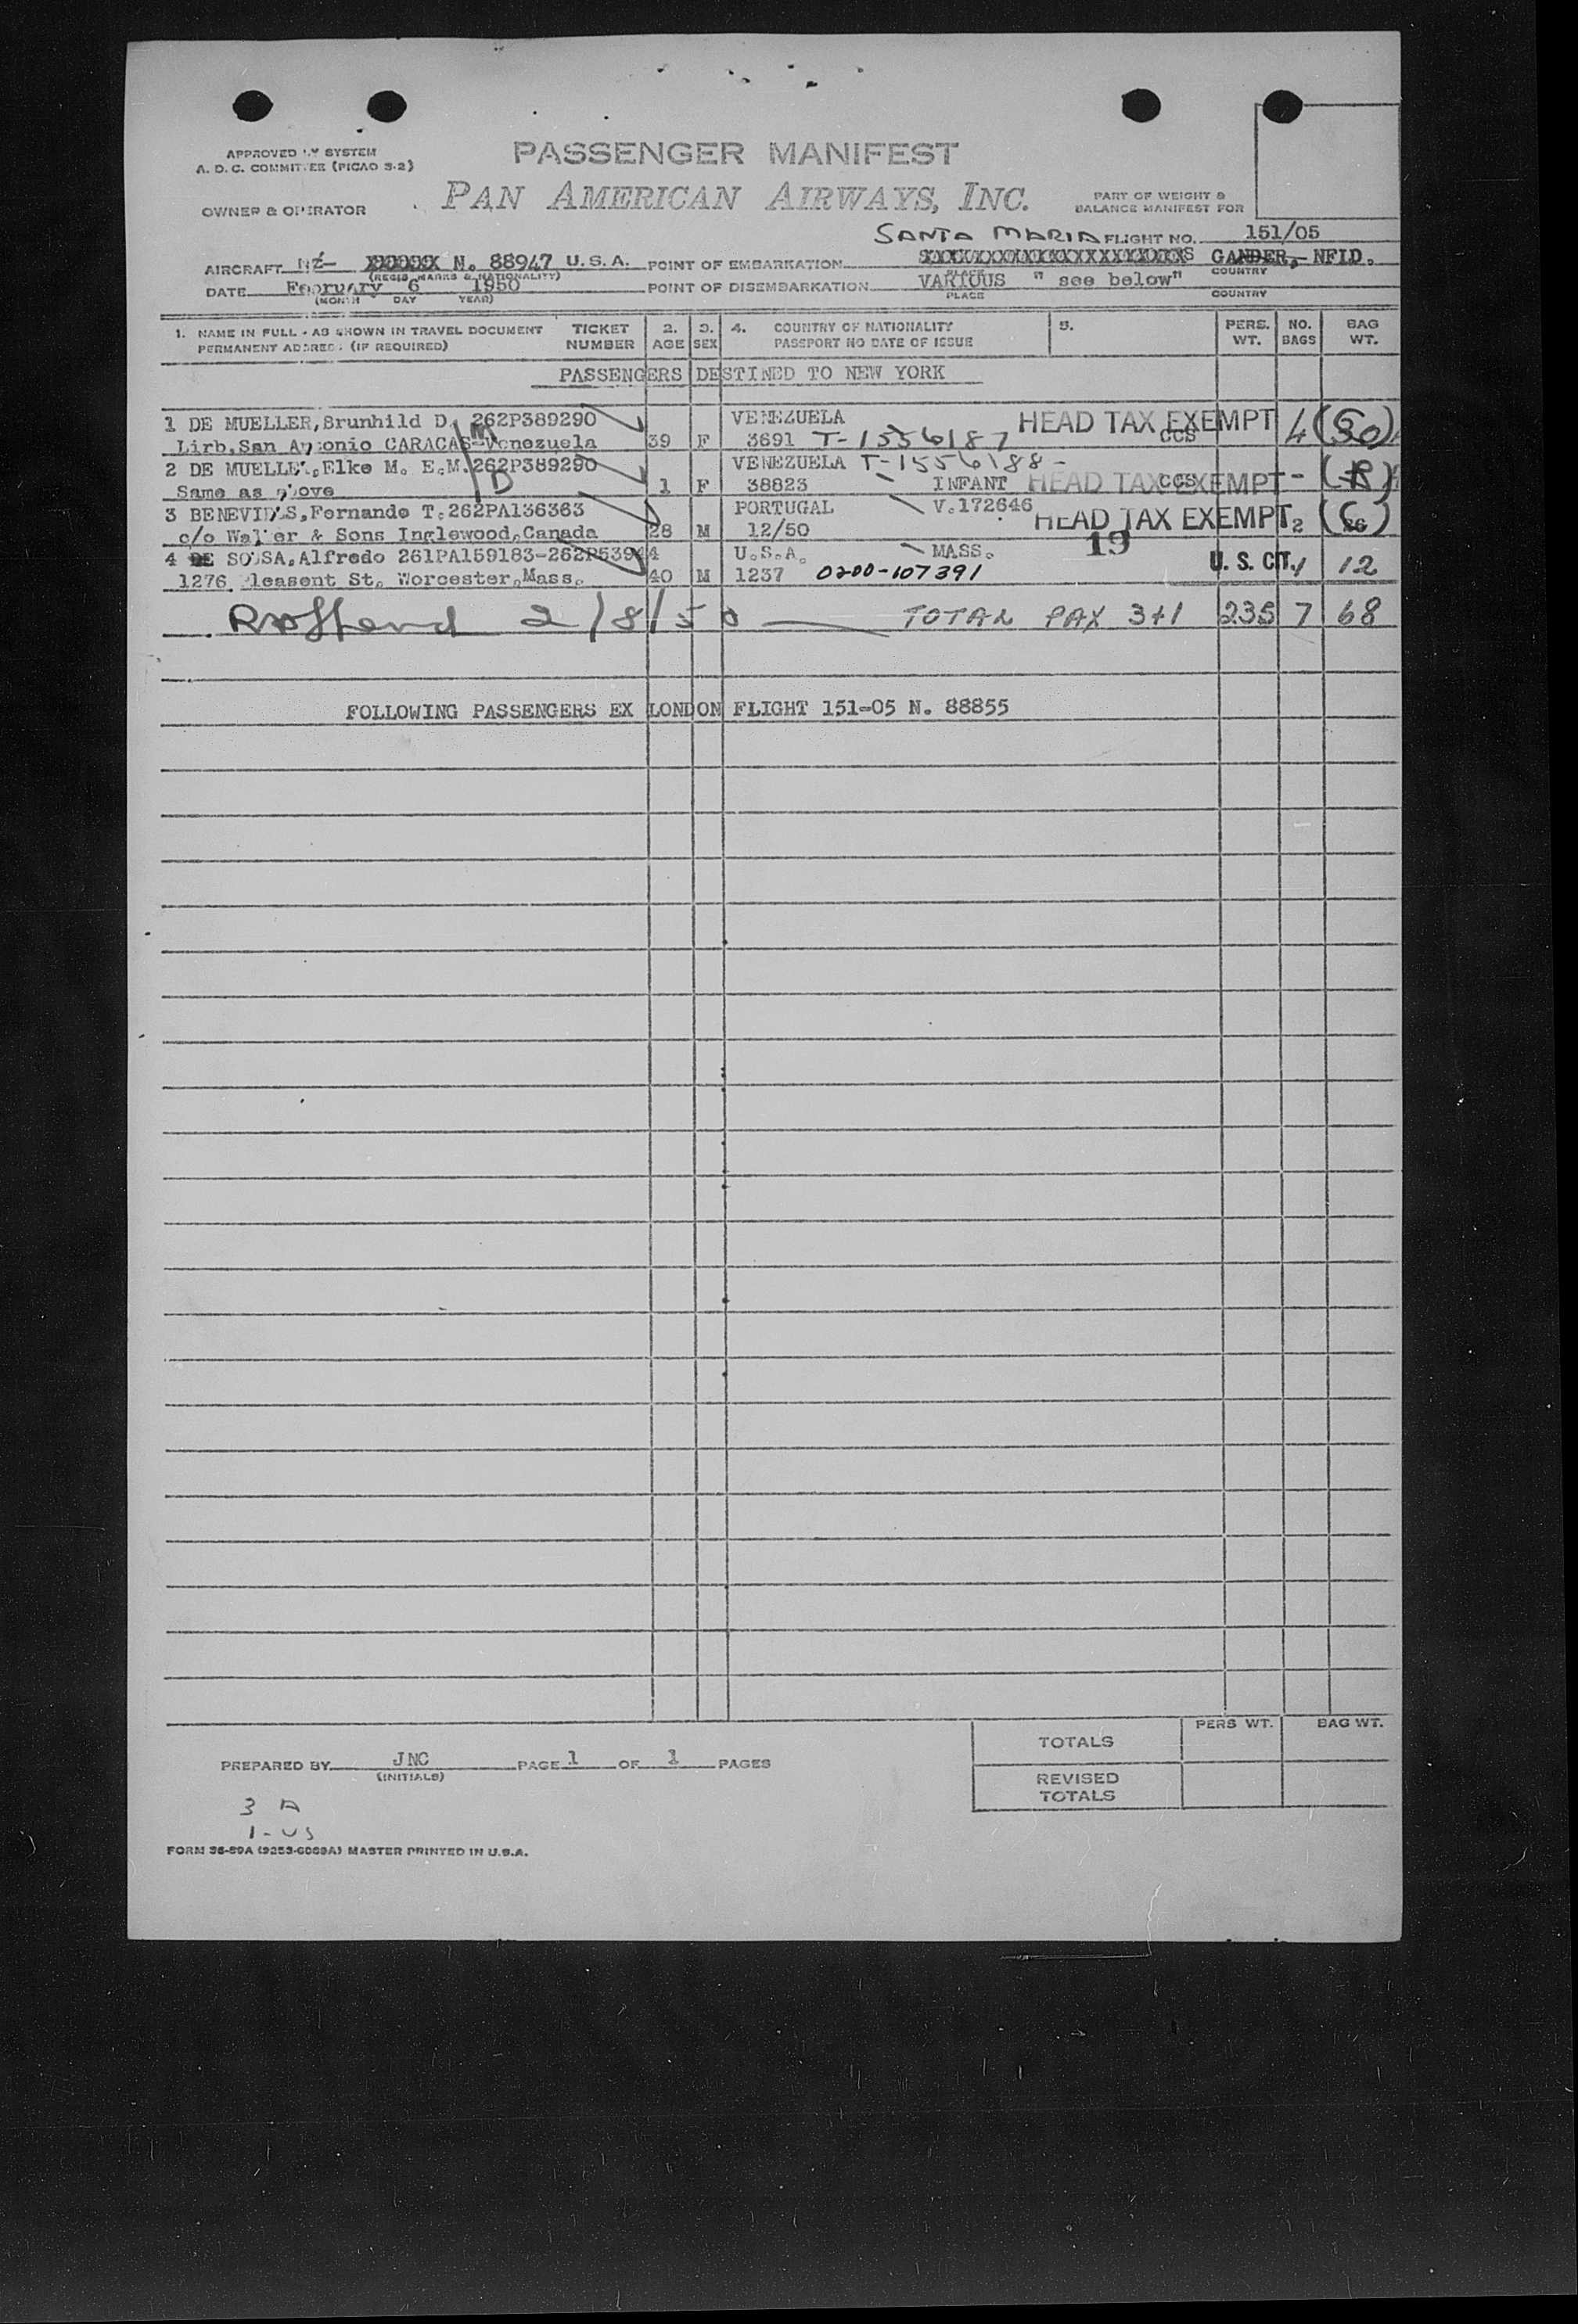 APPROVED BY SYSTEM
A. D. C. COMMITTEE (PICAO S-2)
OWNER & OPERATOR
PASSENGER MANIFEST
PAN AMERICAN AIRWAYS, INC.
PART OF WEIGHT &
BALANCE MANIFEST FOR
SANTA MARIA FLIGHT NO. 151/05
AIRCRAFT N. 88947 U.S.A. POINT OF EMBARKATION GANDER, NFLD.
(REGIS. MARKS & NATIONALITY) PLACE COUNTRY
DATE February 6 1950 POINT OF DISEMBARKATION VARIOUS " see below"
(MONTH DAY YEAR) PLACE COUNTRY
1. NAME IN FULL - AS SHOWN IN TRAVEL DOCUMENT TICKET 2. 3. 4. COUNTRY OF NATIONALITY 5. PERS. NO. BAG
PERMANENT ADDRESS (IF REQUIRED) NUMBER AGE SEX PASSPORT NO DATE OF ISSUE WT. BAGS WT.
PASSENGERS DESTINED TO NEW YORK
1 DE MUELLER, Brunhild D. 262P389290 VENEZUELA HEAD TAX EXEMPT 4
Lirb, San Antonio CARACAS-Venezuela 39 F 3691 T-1556187 CCS
2 DE MUELLER, Elke M. E.M. 262P389290 VENEZUELA T-1556188-
Same as above 1 F 38823 INFANT HEAD TAX EXEMPT CCS -
3 BENEVIDES, Fernando T. 262PA136363 PORTUGAL V.172646 HEAD TAX EXEMPT 2
c/o Walker & Sons Inglewood, Canada 28 M 12/50 19
4 DE SOUSA, Alfredo 261PA159183-262P53944 U.S.A. MASS. U. S. CIT. 1 12
1276 Pleasent St. Worcester, Mass. 40 M 1237 0200-107391
2/8/50 TOTAL PAX 3+1 235 7 68
FOLLOWING PASSENGERS EX LONDON FLIGHT 151-05 N. 88855
PERS WT. BAG WT.
TOTALS
PREPARED BY JNC PAGE 1 OF 1 PAGES
(INITIALS)
REVISED
TOTALS
3 A
1-US
FORM 36-59A (9253-6069A) MASTER PRINTED IN U.S.A.